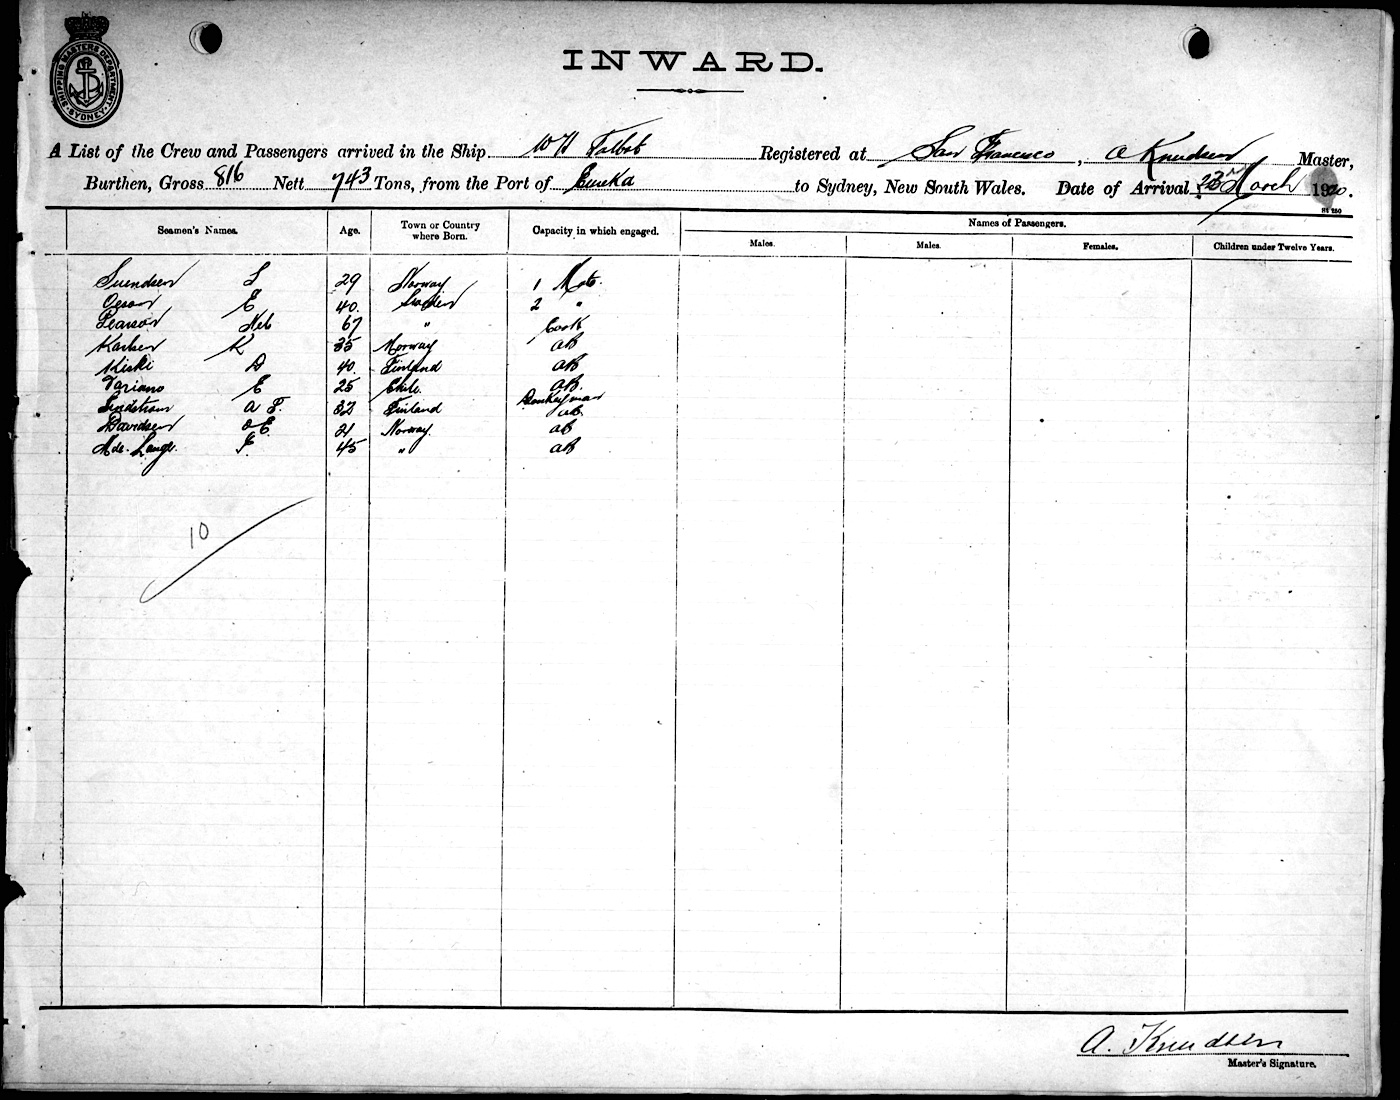 SHIPPING MASTERS DEPARTMENT SYDNEY
INWARD.
A List of the Crew and Passengers arrived in the Ship W H Talbot Registered at San Francisco, A Knudsen Master,
Burthen, Gross 816 Nett 743 Tons, from the Port of Eureka to Sydney, New South Wales. Date of Arrival 23 March 1920.
Seamen's Names. Age. Town or Country where Born. Capacity in which engaged. Names of Passengers.
Males. Males. Females. Children under Twelve Years.
Svendsen S 29 Norway 1 Mate
E 40. Sweden 2 "
Pearson Nels 67 " Cook
K 35 Norway AB
Kiski D 40. Finland AB
Variano E 25 Chile AB.
Lindstrom A F. 32 Finland Donkeyman AB
Davidsen O E. 21 Norway. AB
Lange. F. 45 " AB
10
A. Knudsen
Master's Signature.